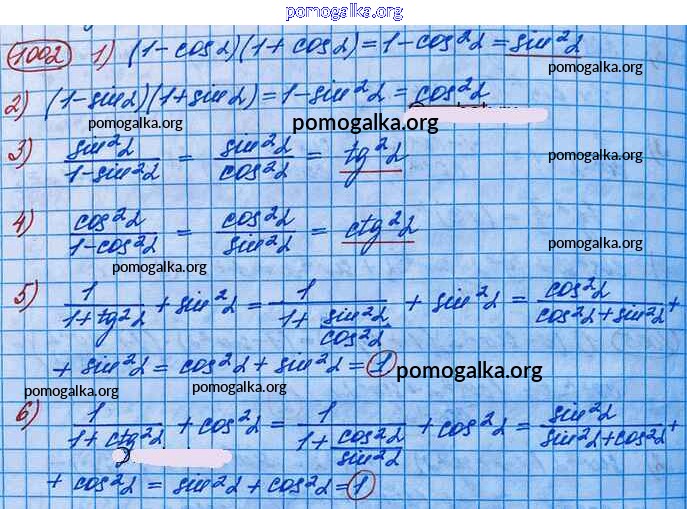 pomogalka.org
1002 1) (1-cosα)(1+cosα)=1-cos²α=sin²α
pomogalka.org
2) (1-sinα)(1+sinα)=1-sin²α=cos²α
pomogalka.org pomogalka.org
3) sin²α/1-sin²α = sin²α/cos²α = tg²α
pomogalka.org
4) cos²α/1-cos²α = cos²α/sin²α = ctg²α
pomogalka.org
pomogalka.org
5) 1/1+tg²α + sin²α = 1/1+sin²α/cos²α + sin²α = cos²α/cos²α+sin²α +
+ sin²α = cos²α + sin²α = 1
pomogalka.org pomogalka.org pomogalka.org
6) 1/1+ctg²α + cos²α = 1/1+cos²α/sin²α + cos²α = sin²α/sin²α+cos²α +
+ cos²α = sin²α + cos²α = 1